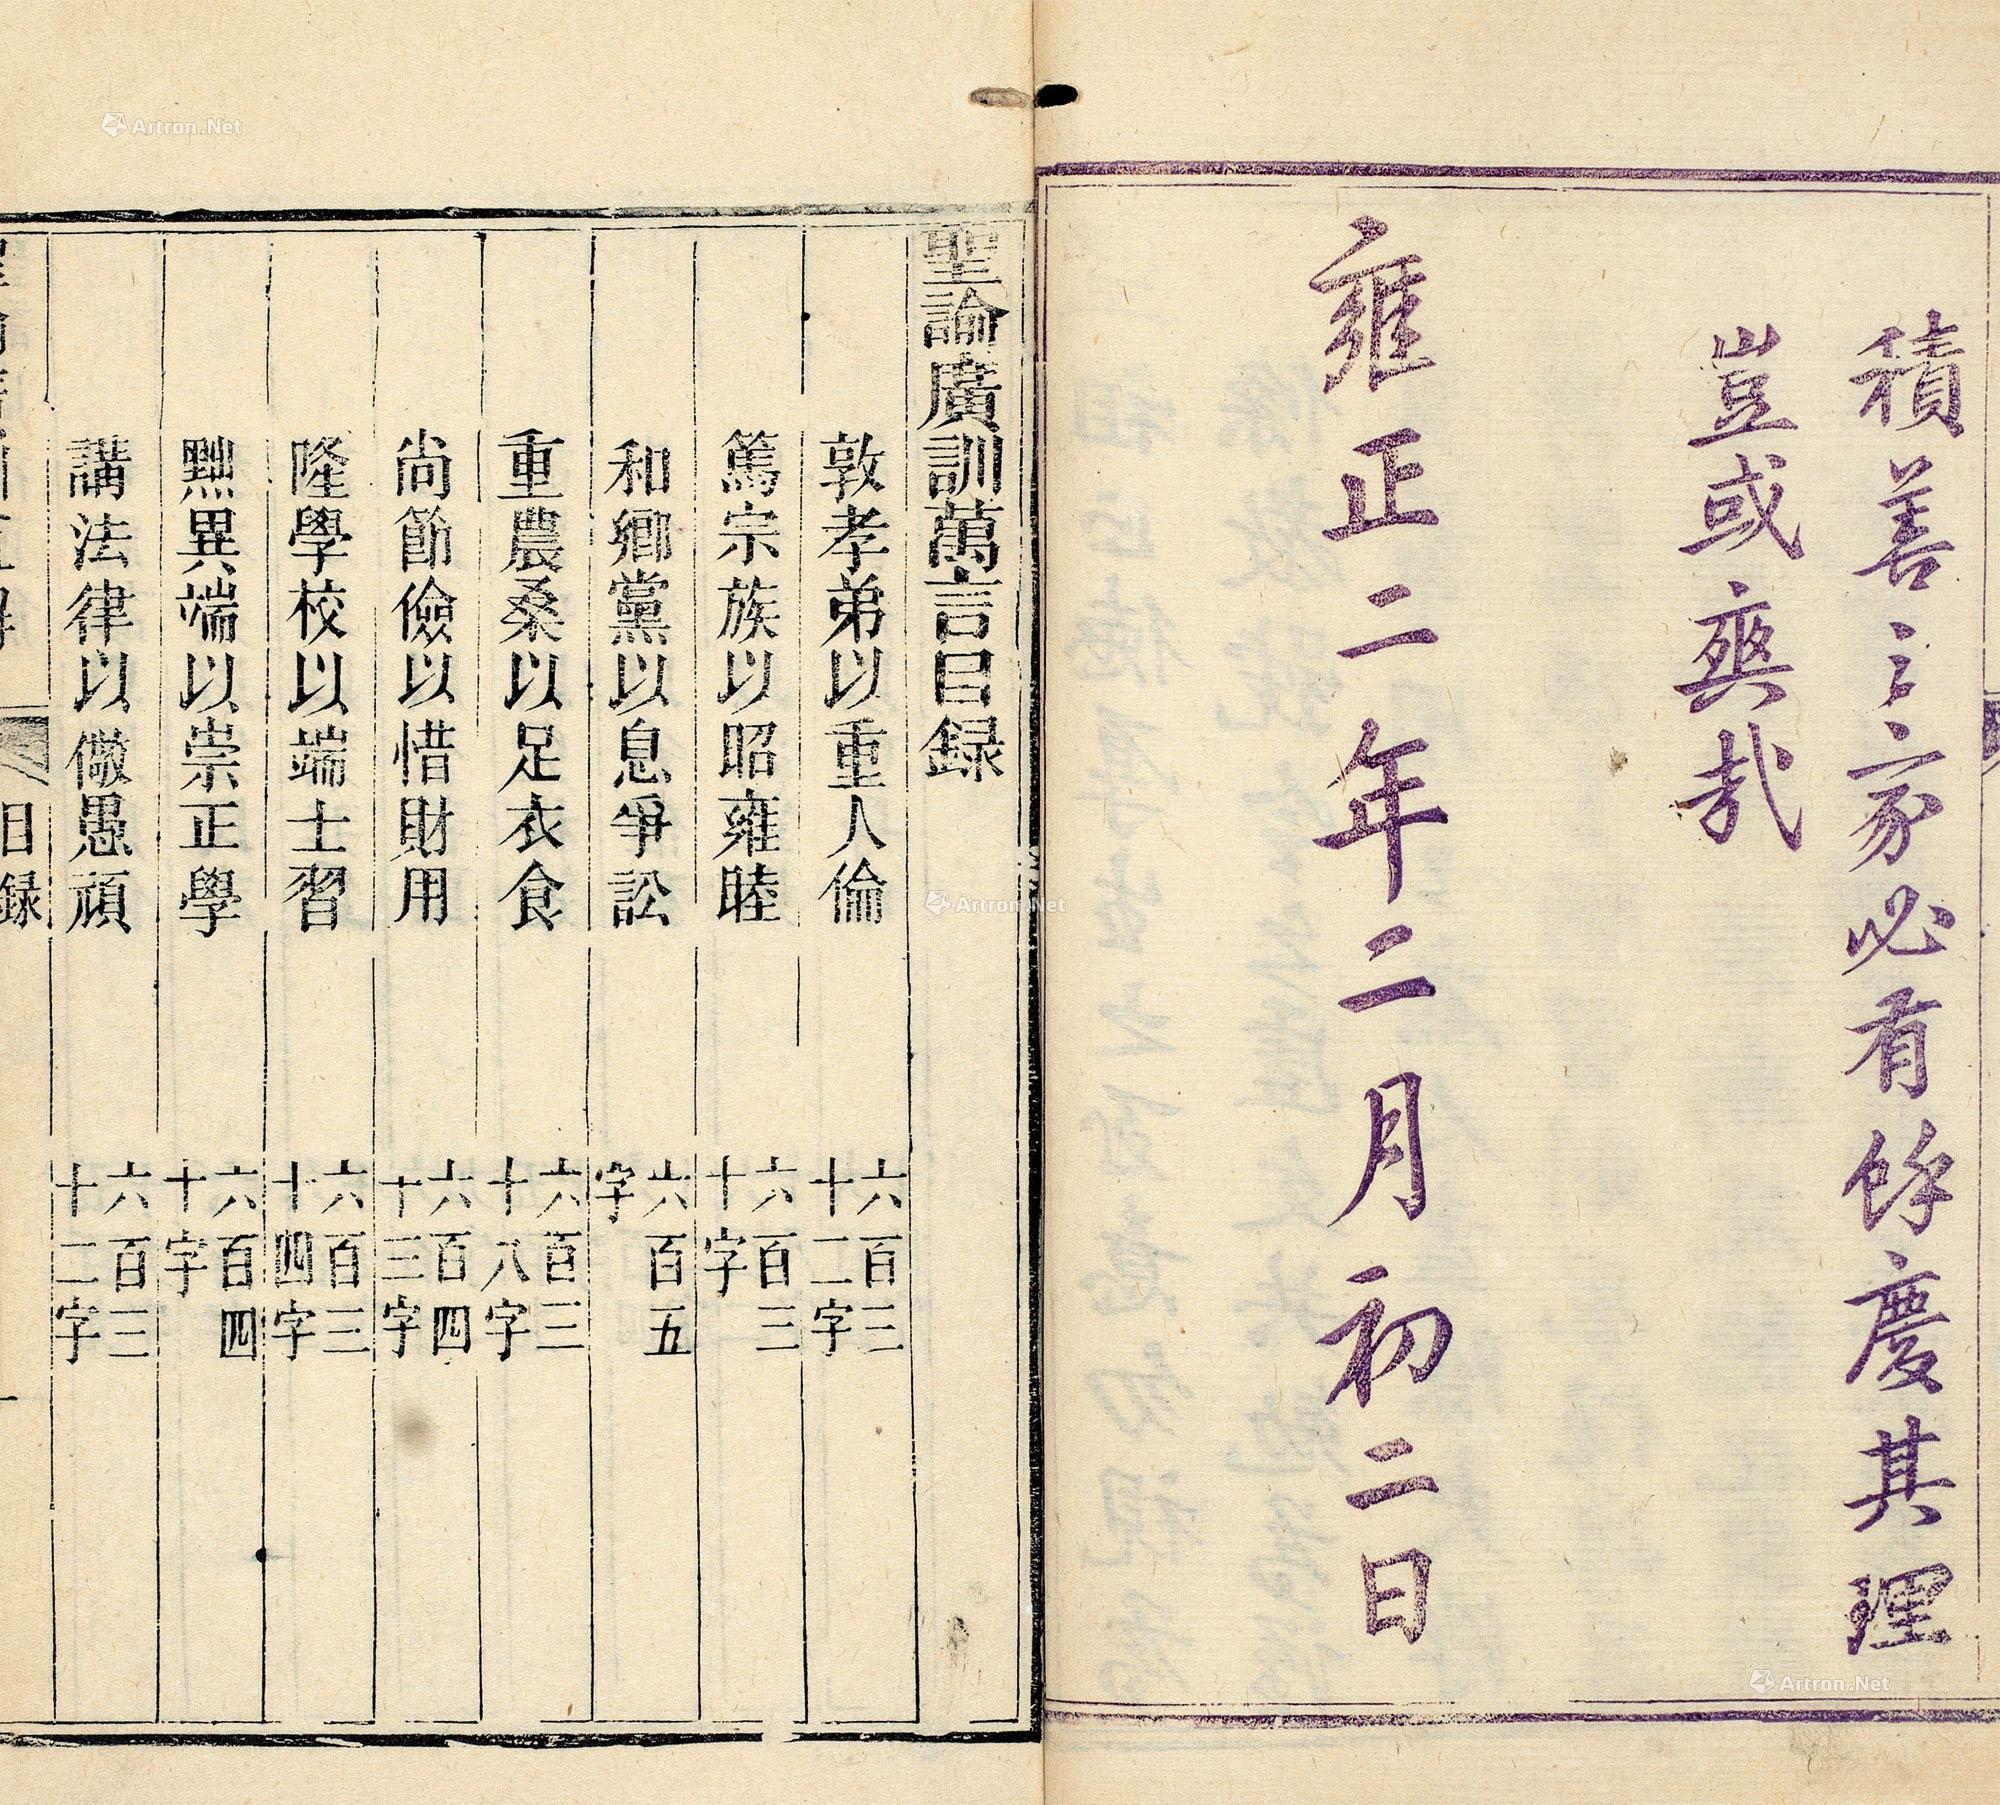 積善之家必有餘慶其理
豈或爽哉
雍正二年二月初二日
聖諭廣訓萬言目録
敦孝弟以重人倫 六百三十二字
篤宗族以昭雍睦 六百三十字
和鄉黨以息爭訟 六百五字
重農桑以足衣食 六百三十八字
尚節儉以惜財用 六百四十三字
隆學校以端士習 六百三十四字
黜異端以崇正學 六百四十字
講法律以儆愚頑 六百三十二字
目録
Artron.Net
Artron.Net
Artron.Net